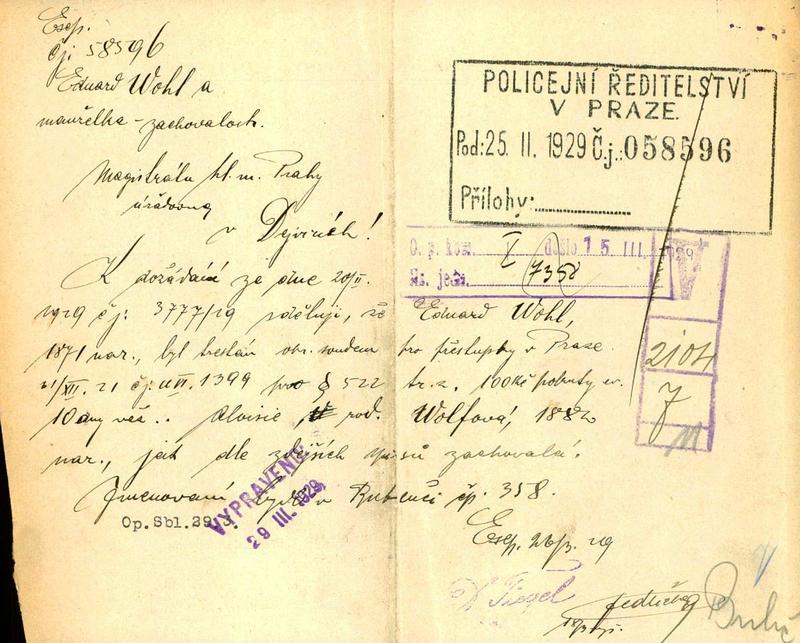 Esep.
čj: 58596
Eduard Wohl a
manželka - zachovalost.
Magistrátu hl. m. Prahy
úřadovna
v Dejvicích!
K dožádání ze dne 20/II.
1929 čj: 3777/29 sděluji, že Eduard Wohl,
1871 nar., byl trestán okr. soudem pro přestupky v Praze
21/XII. 21 čj: U VI. 1399 pro § 522 tr. z. 100 Kč pokuty ev.
10 dny věz.. Aloisie, rod. Wolfová, 1882
nar., jak dle zdejších spisů zachovalá.
Jmenovaní bydlí v Bubenči čp. 358.
Esep. 26/3. 29
POLICEJNÍ ŘEDITELSTVÍ
V PRAZE.
Pod: 25. II. 1929 Č.j.: 058596
Přílohy:
O. p. kom. X došlo 15. III. 1929
čs. jedn. 7358
V
2104
7
VYPRAVENO
29 III. 1929
Op.Sbl.29/3.